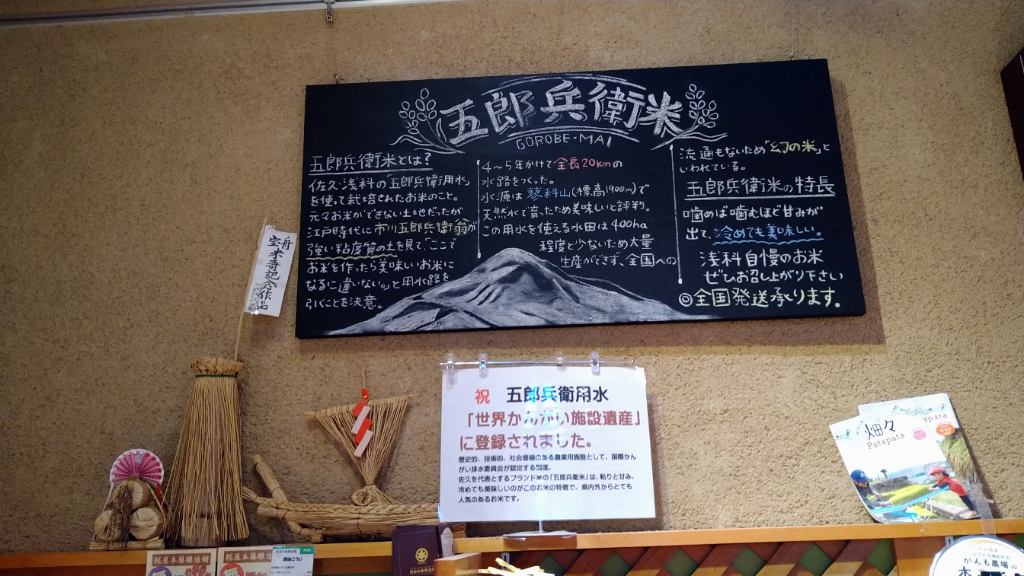 五郎兵衛米
GOROBE-MAI
五郎兵衛米とは?
佐久浅科の「五郎兵衛用水」
を使って栽培されたお米のこと。
元々お米ができない土地だったが
江戸時代に市川五郎兵衛翁が
強い粘度質の土を見て「ここで
お米を作ったら美味しいお米に
なるに違いない」と用水路を
引くことを決意。
4〜5年かけて全長20kmの
水路をつくった。
水源は蓼科山(標高1900m)で
天然水で育ったため美味しいと評判。
この用水を使える水田は400ha
程度と少ないため大量
生産ができず、全国への
流通もないため「幻の米」と
いわれている。
五郎兵衛米の特長
噛めば噛むほど甘みが
出て、冷めても美味しい。
浅科自慢のお米
ぜひお召し上がり下さい
◎全国発送承ります。
宝船
記念作品
祝 五郎兵衛用水
「世界かんがい施設遺産」
に登録されました。
歴史的、技術的、社会価値のある農業用施設として、国際かん
がい排水委員会が認定する制度。
佐久を代表とするブランド米の「五郎兵衛米」は、粘りと甘み、
冷めても美味しいのがこのお米の特徴で、県内外からとても
人気のあるお米です。
畑々
Patapata
spata
糀屋本藤醸造舗
糀屋本藤醸
がんも農場の